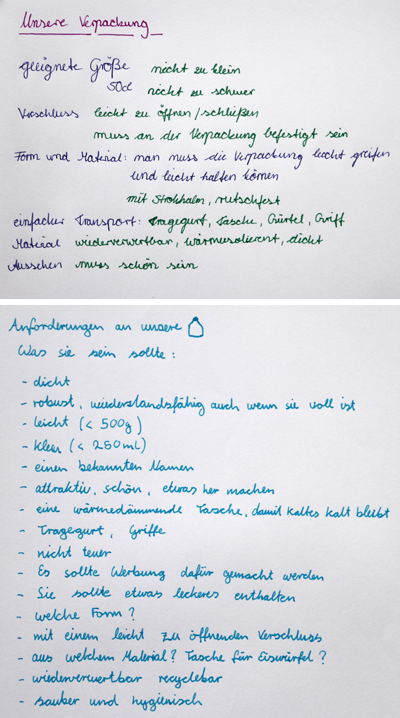 Unsere Verpackung
geeignete Größe nicht zu klein
50cl nicht zu schwer
Verschluss leicht zu öffnen/schließen
muss an der Verpackung befestigt sein
Form und Material: man muss die Verpackung leicht greifen
und leicht halten können
mit Strohhalm, rutschfest
einfacher Transport: Tragegurt, Tasche, Gürtel, Griff
Material wiederverwertbar, wärmeisolierent, dicht
Aussehen muss schön sein
Anforderungen an unsere
Was sie sein sollte:
- dicht
- robust, wiederstandsfähig auch wenn sie voll ist
- leicht (< 500g)
- klein (< 250mL)
- einen bekannten Namen
- attraktiv, schön, etwas her machen
- eine wärmedämmende Tasche, damit kaltes kalt bleibt
- Tragegurt, Griffe
- nicht teuer
- Es sollte Werbung dafür gemacht werden
- Sie sollte etwas leckeres enthalten
- welche Form?
- mit einem leicht zu öffnenden Verschluss
- aus welchem Material? Tasche für Eiswürfel?
- wiederverwertbar recyclebar
- sauber und hygienisch